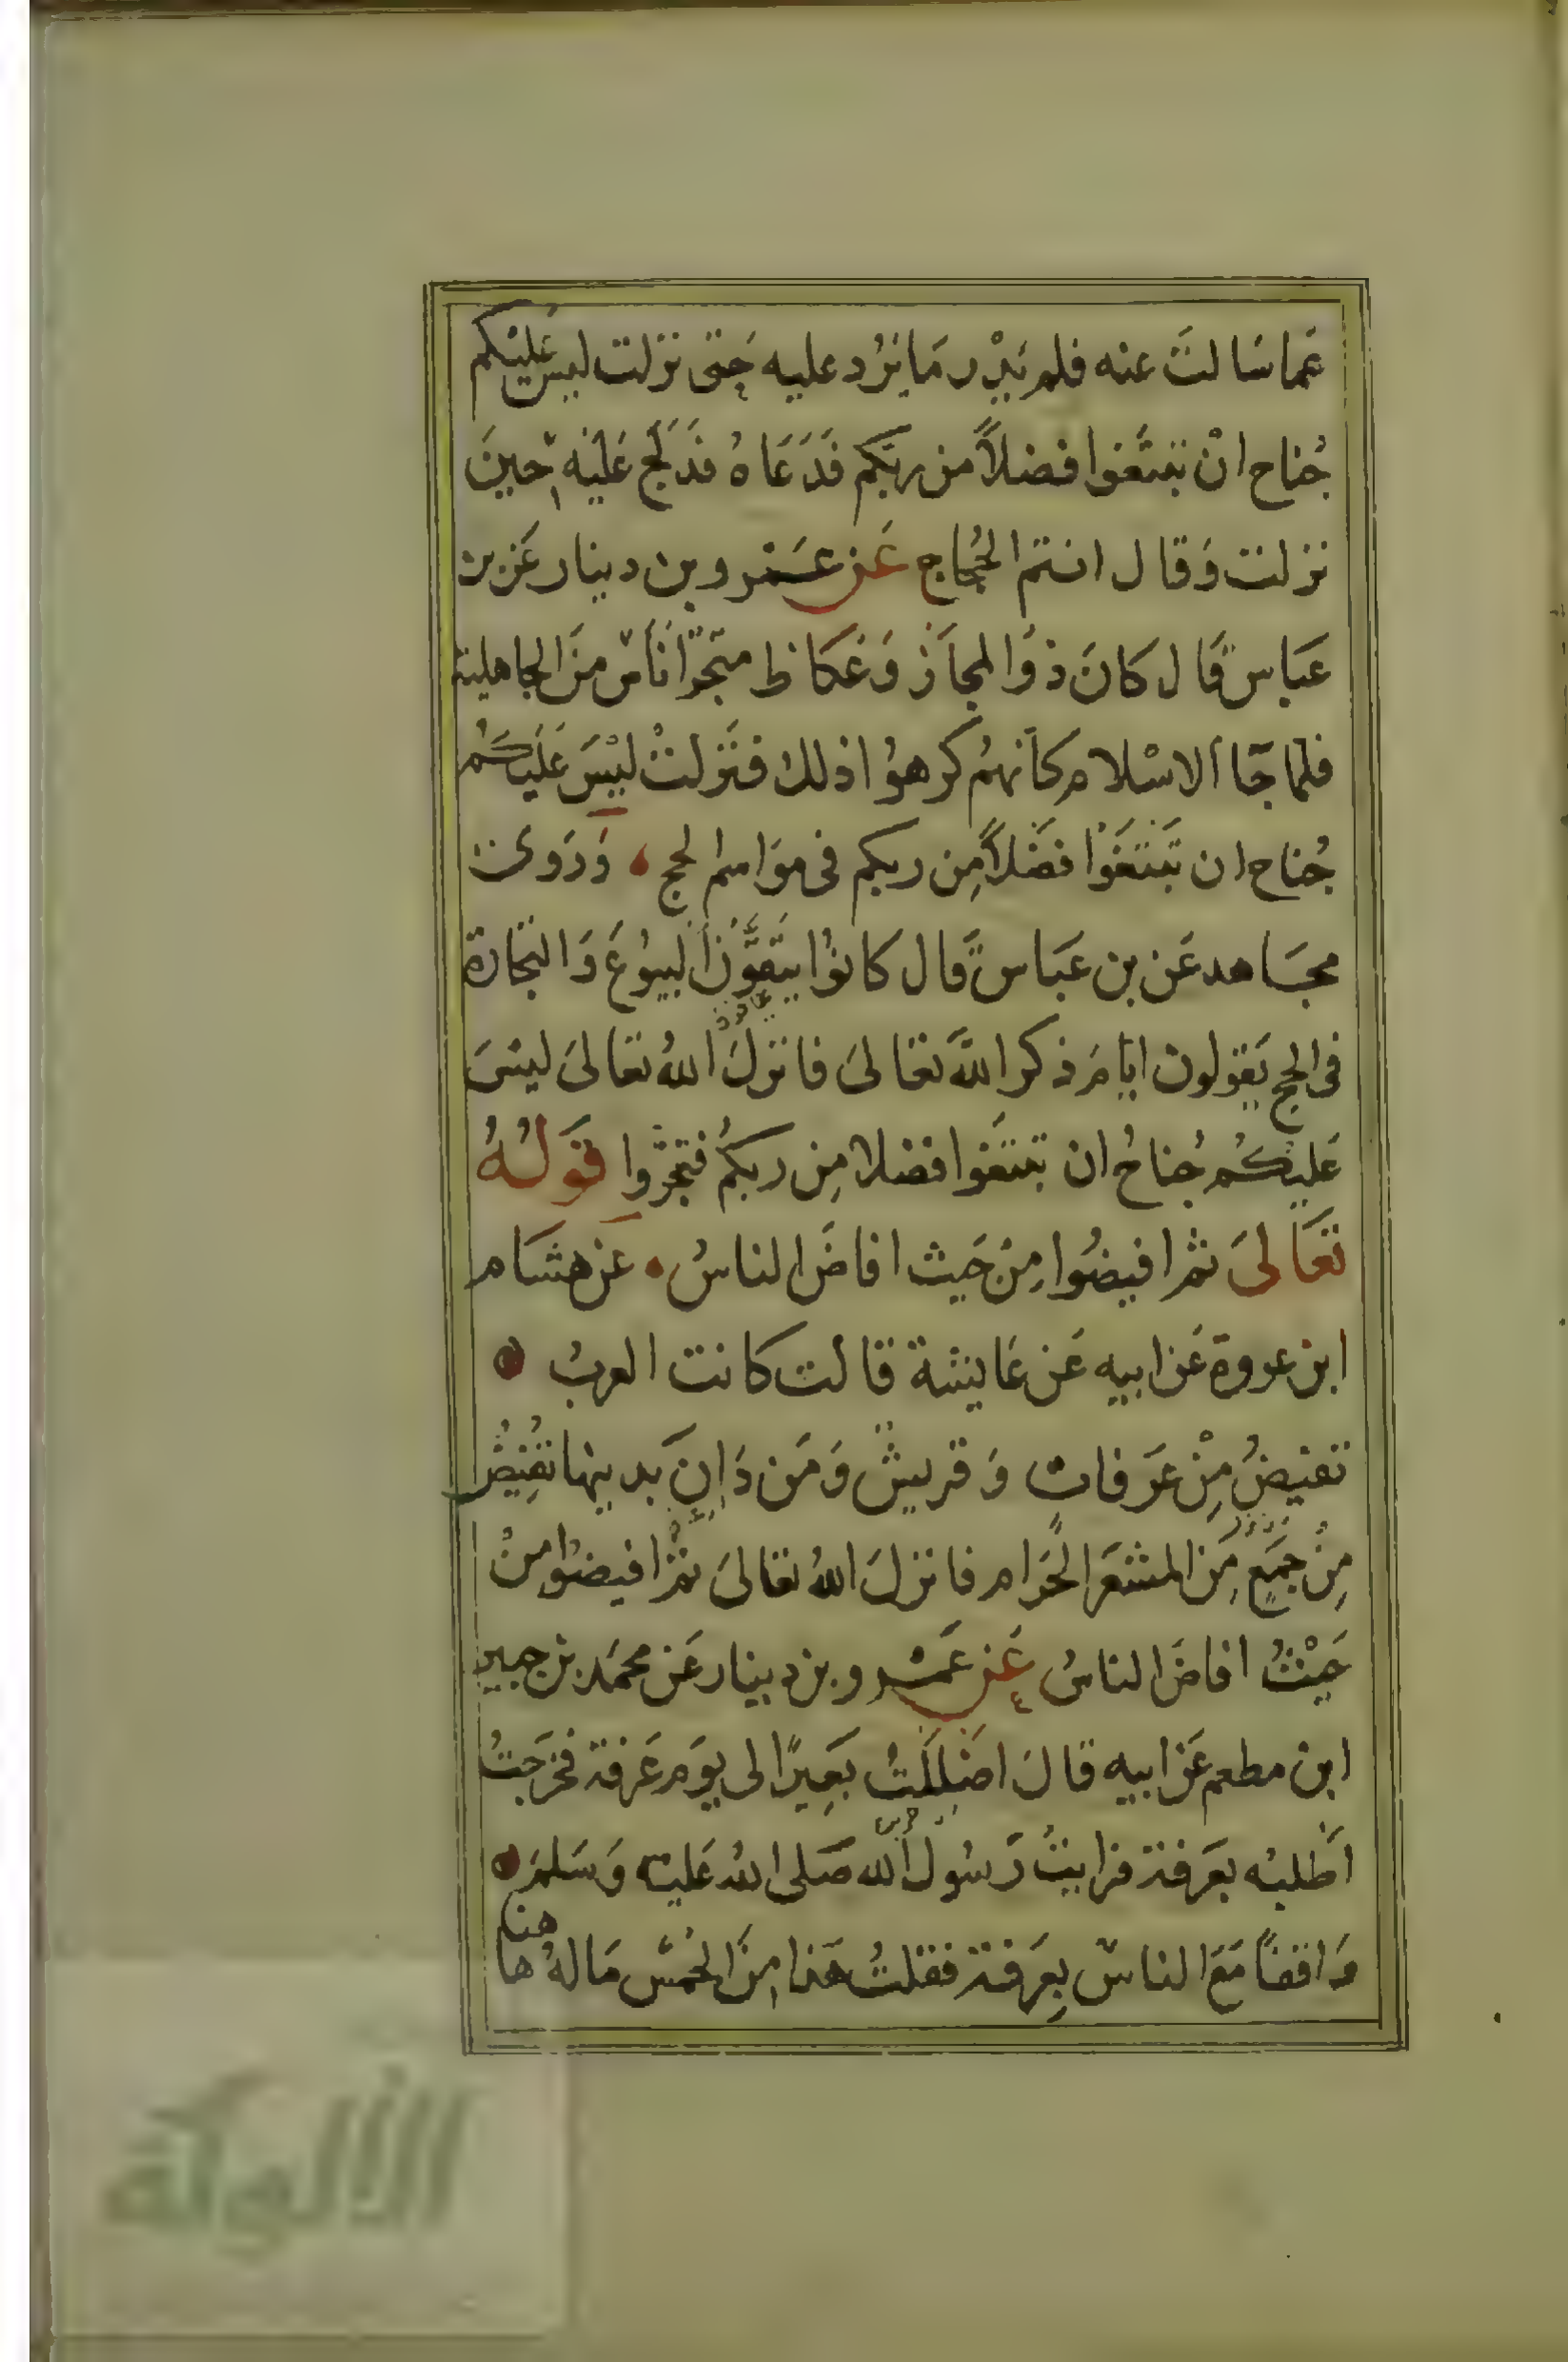 عَما سَالتَ عنه فلم يَدْر مَا يَرُد عليه حَتى نزلت ليس عَليْكم
جُناح انْ تبتَغوا فضلاً من ربكم فَدَعَاهُ فتَلَى عَليْه حِينَ
نزلت وَقال انتم الحُجاج عَن عَمْرو بن دينار عَن بن
عَباسٍ قَال كانَ ذوُ المجاز وَعكاظ متجرُ اناسٍ منَ الجاهلية
فلما جَا الاسْلام كأنهمُ كرهوُا ذلك فنَزلتْ ليْسَ عَليكمُ
جُناح ان تَبتَغَوْا فضَلاً مِن ربكم فى موَاسم الحج وَرَوى
مجَاهد عَن بن عَباس قَال كانوُا يتَقوُنَ البيُوعَ وَالتجَارة
فى الحج يَقولون ايامَ ذكر اللَّه تعَالىَ فانزلَ اللهُ تعالىَ ليسَ
عَليكمُ جُناحُ ان تبتَغوا فضلا مِن ربكمُ فتجرُوا قوَلهُ
تعَالىَ ثم افيضُوا مِنْ حَيث افاضَ الناسُ عَن هشام
ابن عروة عَن ابيه عَن عَايشة قالت كانت العربُ
تفيضُ مِنْ عَرَفاتٍ وَ قريشٌ وَمَن دَانَ بدينها تفُيِضُ
مِنْ جمَعٍ مِن المشعَر الحَرام فانزلَ اللهُ تعالىَ ثم افيضوُا منْ
حَيْثُ افاضَ الناسُ عَن عَمْرو بن دينار عَن محمَد بن جبير
ابن مطعم عَن ابيه قالَ اضَلَلَتُ بَعِيرًا لى يوَم عَرفة فخرَجتُ
اَطلبُه بعَرفة فرَايتُ رَسُول الله صَلى اللهُ عَليه وَسَلم
وَاقفاً مَعَ الناسِ بِعَرفة فقلتُ هَذا مِنَ الحُمسْ مَالهُ هاهنا
الألوكة